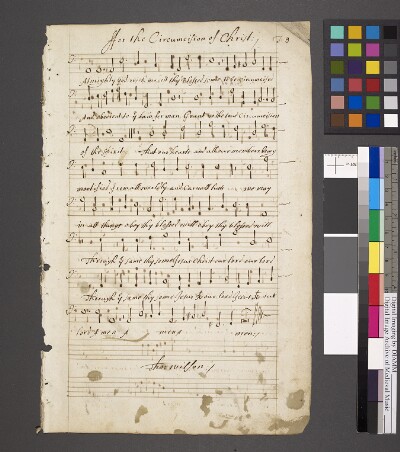 ffor the Circumcision of Christ
Almighty God wch made thy blessed sonne to be Circumcised
And obedient to ye Law for man Grant us the true Circumcision
of the spirit That our hearts and all our members being
mortified from all worldly and Carnall lusts we may
in all things obey thy blessed will obey thy blessed will
Through ye same thy sonne Jesus Christ our lord our lord
Through ye same thy sonne Jesus our lord
lord Amen men men
Tho: wilson
Digital Imaging by DIAMM
Digital Image Archive of Medieval Music